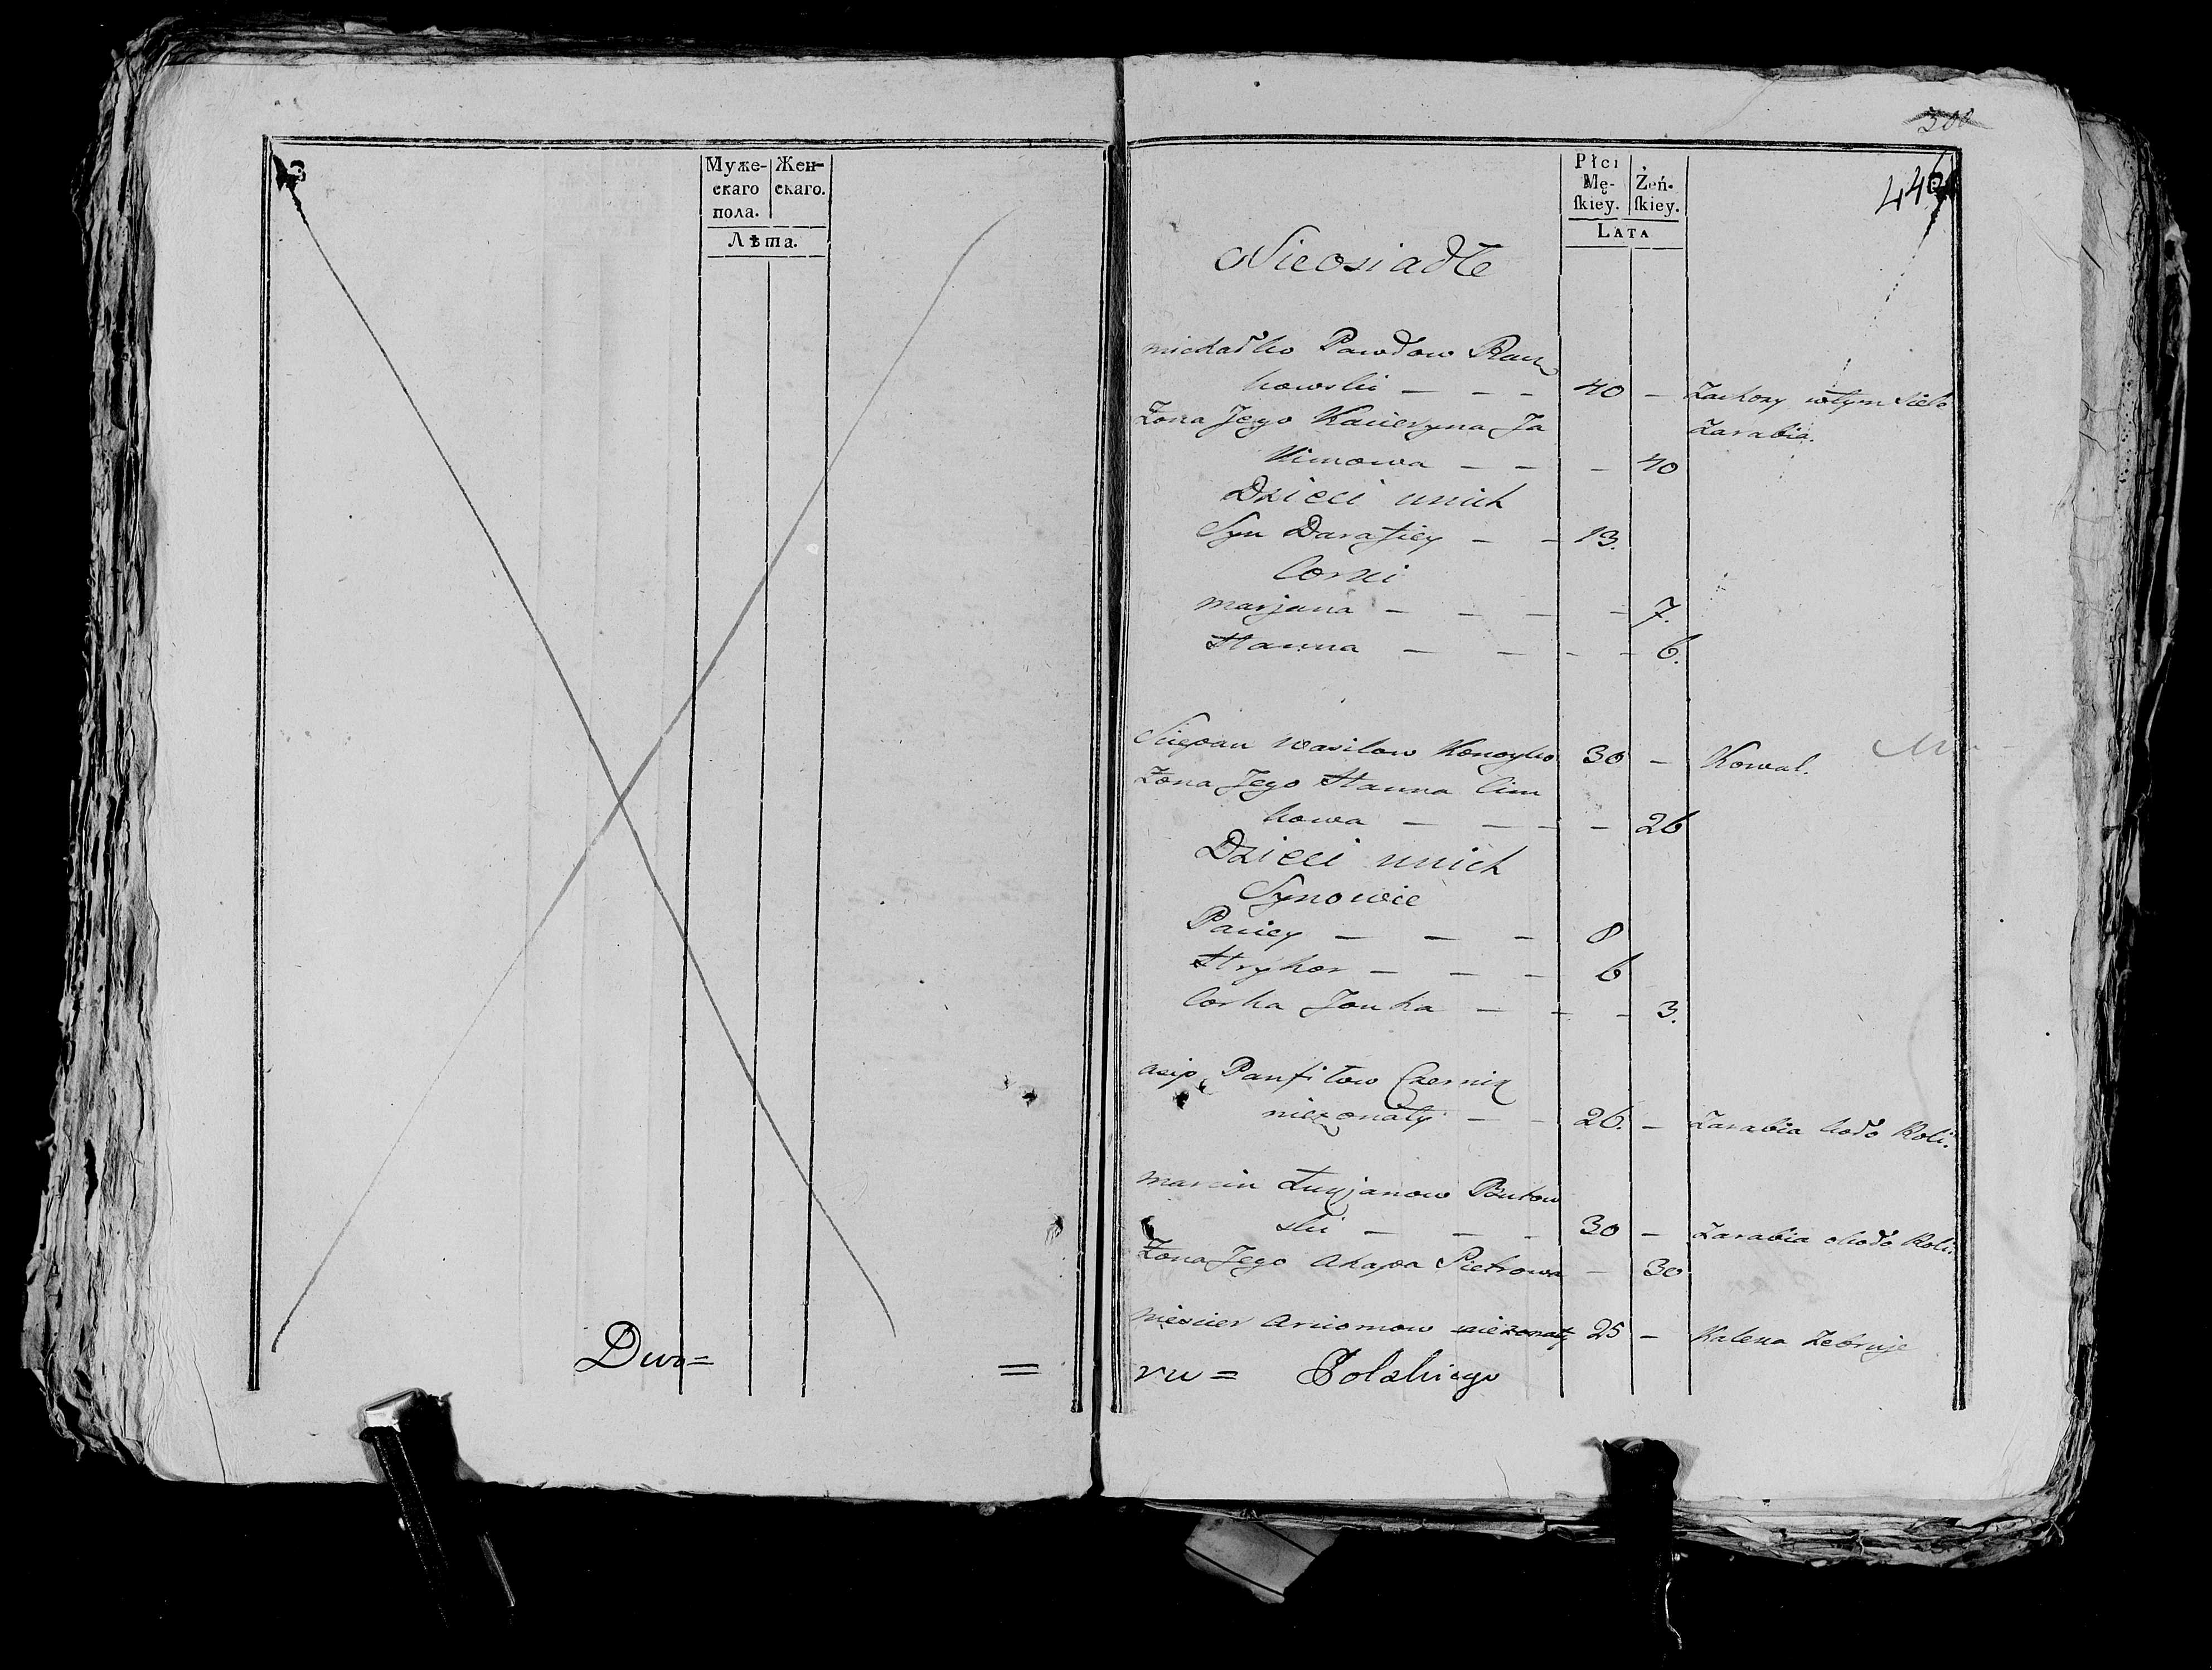 Муже-
скаго
пола.
Жен-
скаго.
Лѣта.
Dwo=
=
300
446
Płci
Mę-
ſkiey.
Żeń-
ſkiey.
LATA
Nieosiadłe
Michałko Pawłow Rau
kowski — — — 40 — Zachozy wtym siele
Zona Jego Kacieryna Ja Zarabia.
kimowa — — — 40
Dzieci unich
Syn Darafiey — — 13.
Corki
Marjana — — — — 7.
Hanna — — — — 6.
Sciepan Wasilow Konoyko 30 — Kowal.
Zona Jego Hanna Cim
kowa — — — — 26
Dzieci unich
Synowie
Paciey — — — 8
Hryhor — — — 6
Corka Jonka — — — 3.
Asip Panfiłow Czernik
niezonaty — — 26. — Zarabia koło Roli.
Marcin Łukjanow Putow
ski — — — 30 — Zarabia około Roli.
Zona Jego Ahapa Pietrowa — 30
Niescier Arciomow niezonaty 25 — Kaleka Zebruje
ru = Polskiego